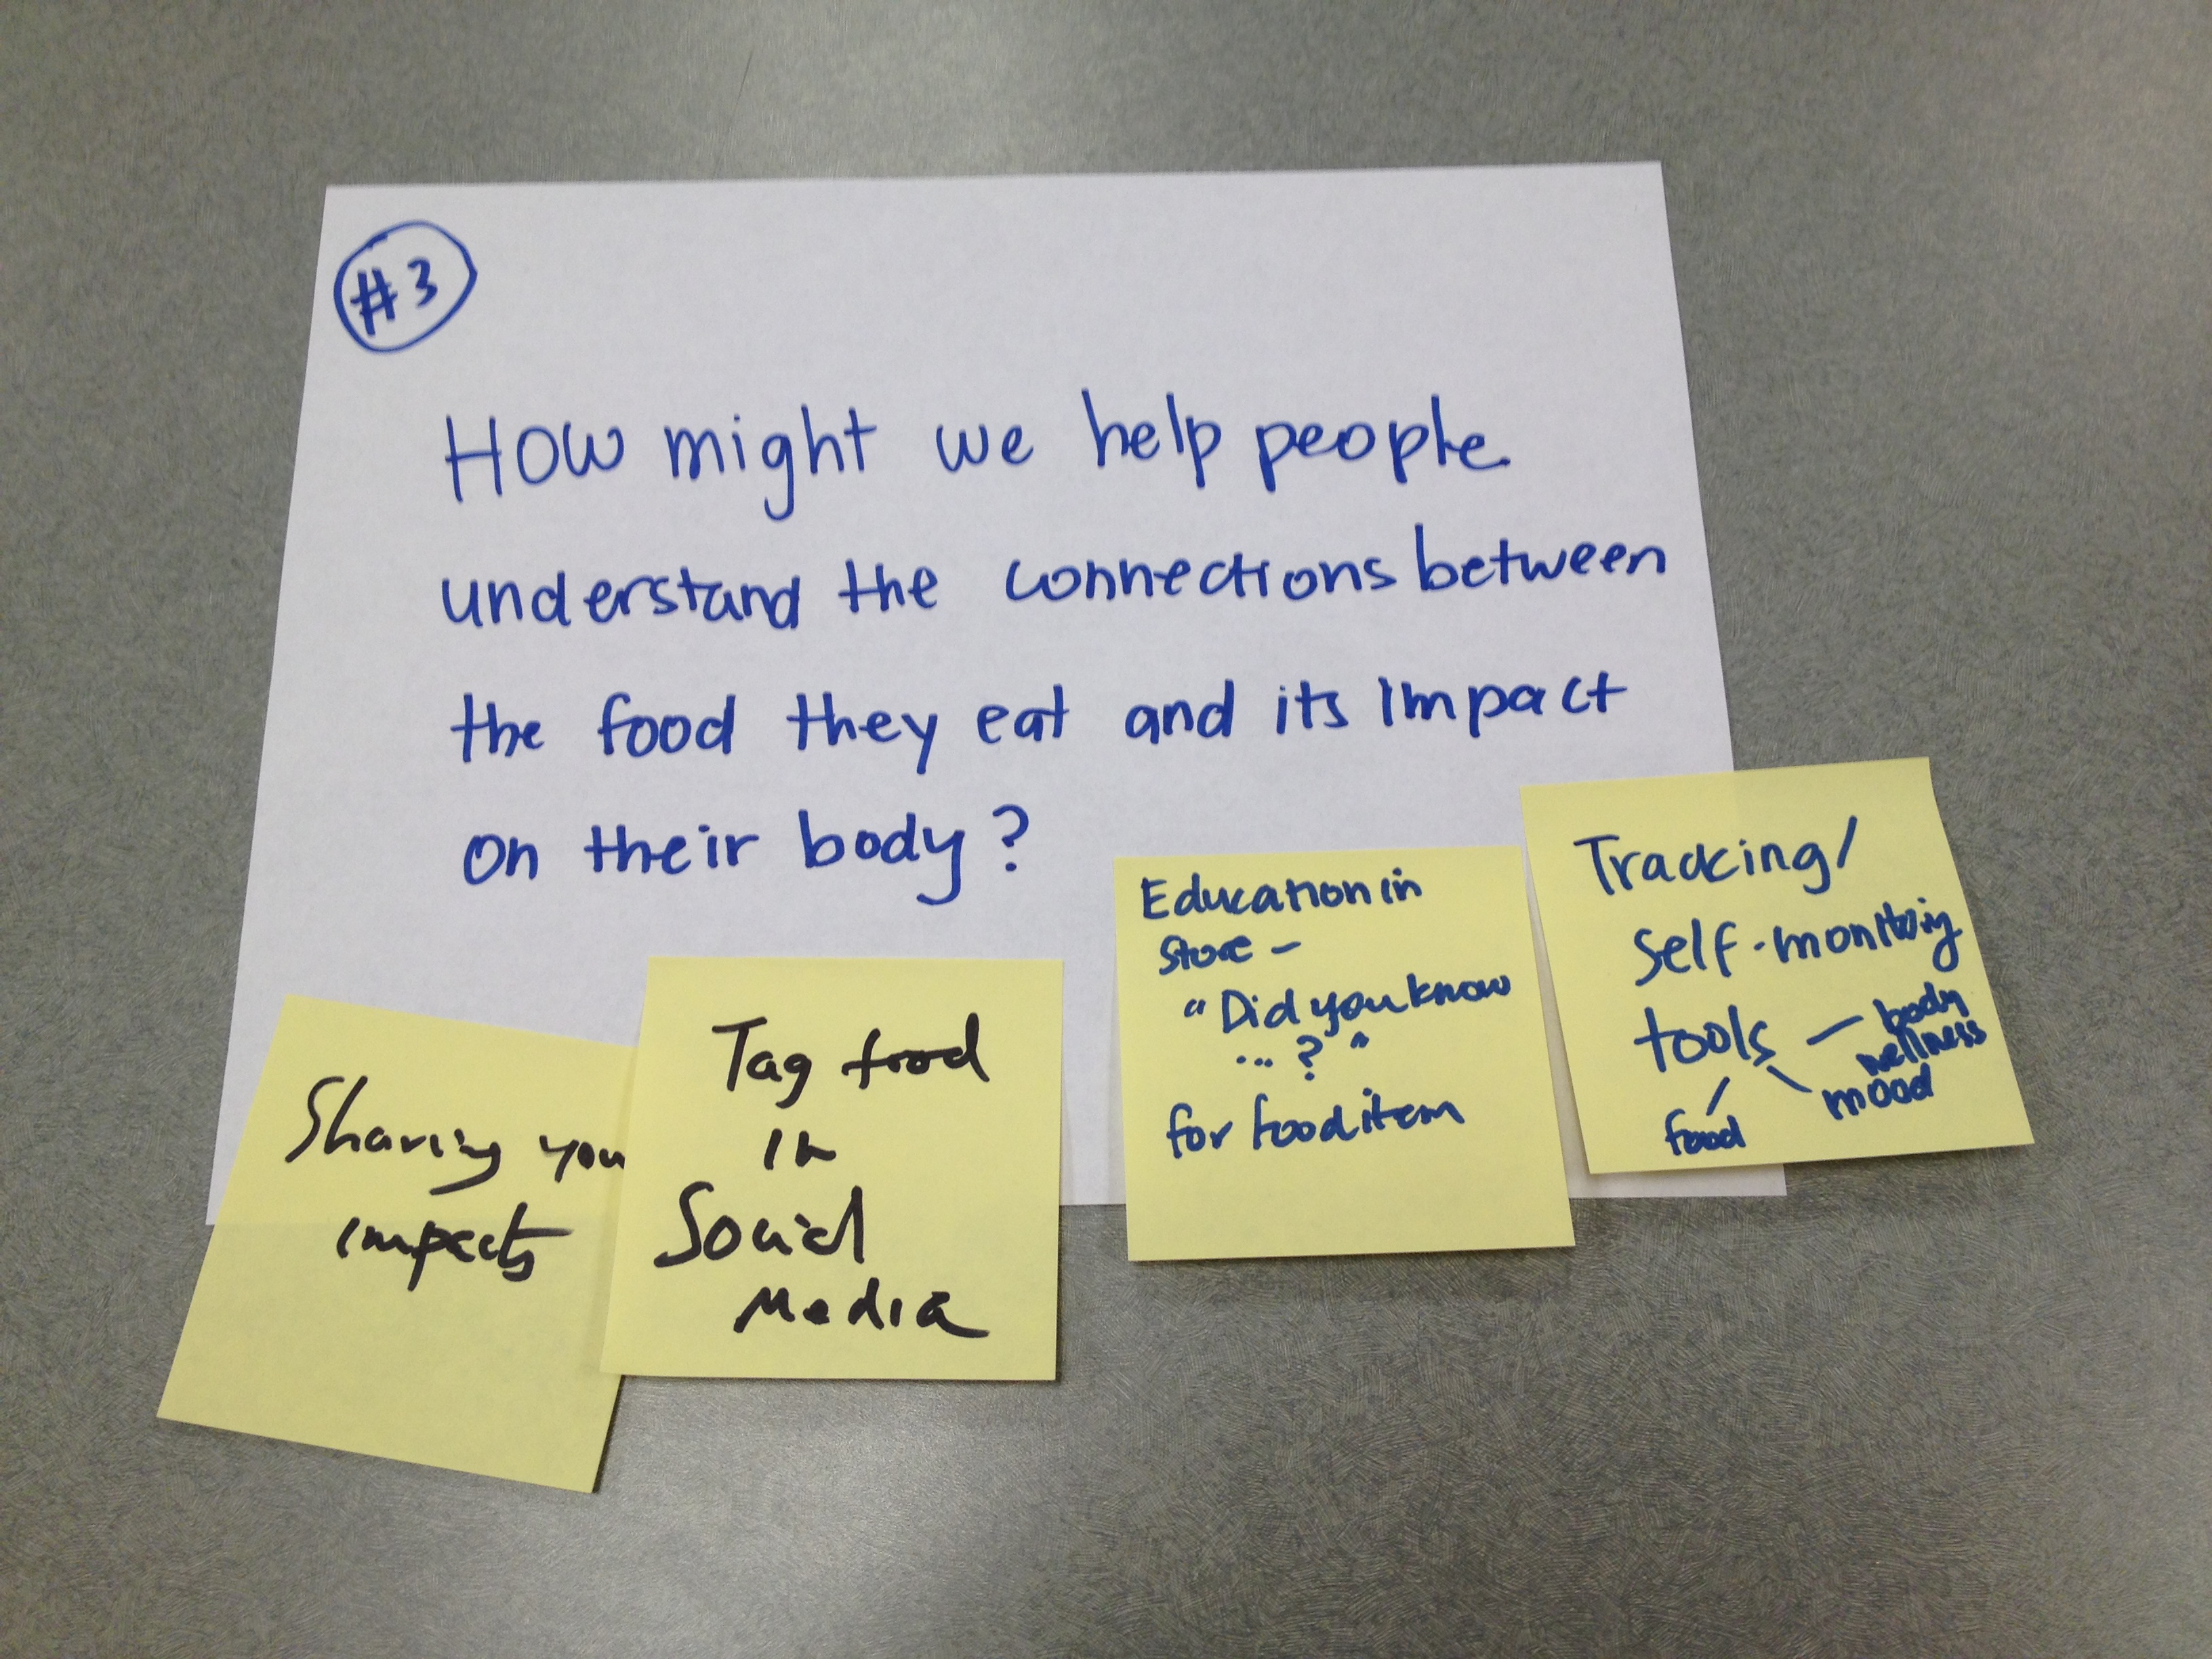 #3
How might we help people
understand the connections between
the food they eat and its impact
on their body?
Sharing you
impacts
Tag food
in
Social
Media
Education in
Store -
"Did you know
... ?"
for food item
Tracking/
self-monitoring
tools - body
wellness
mood
food